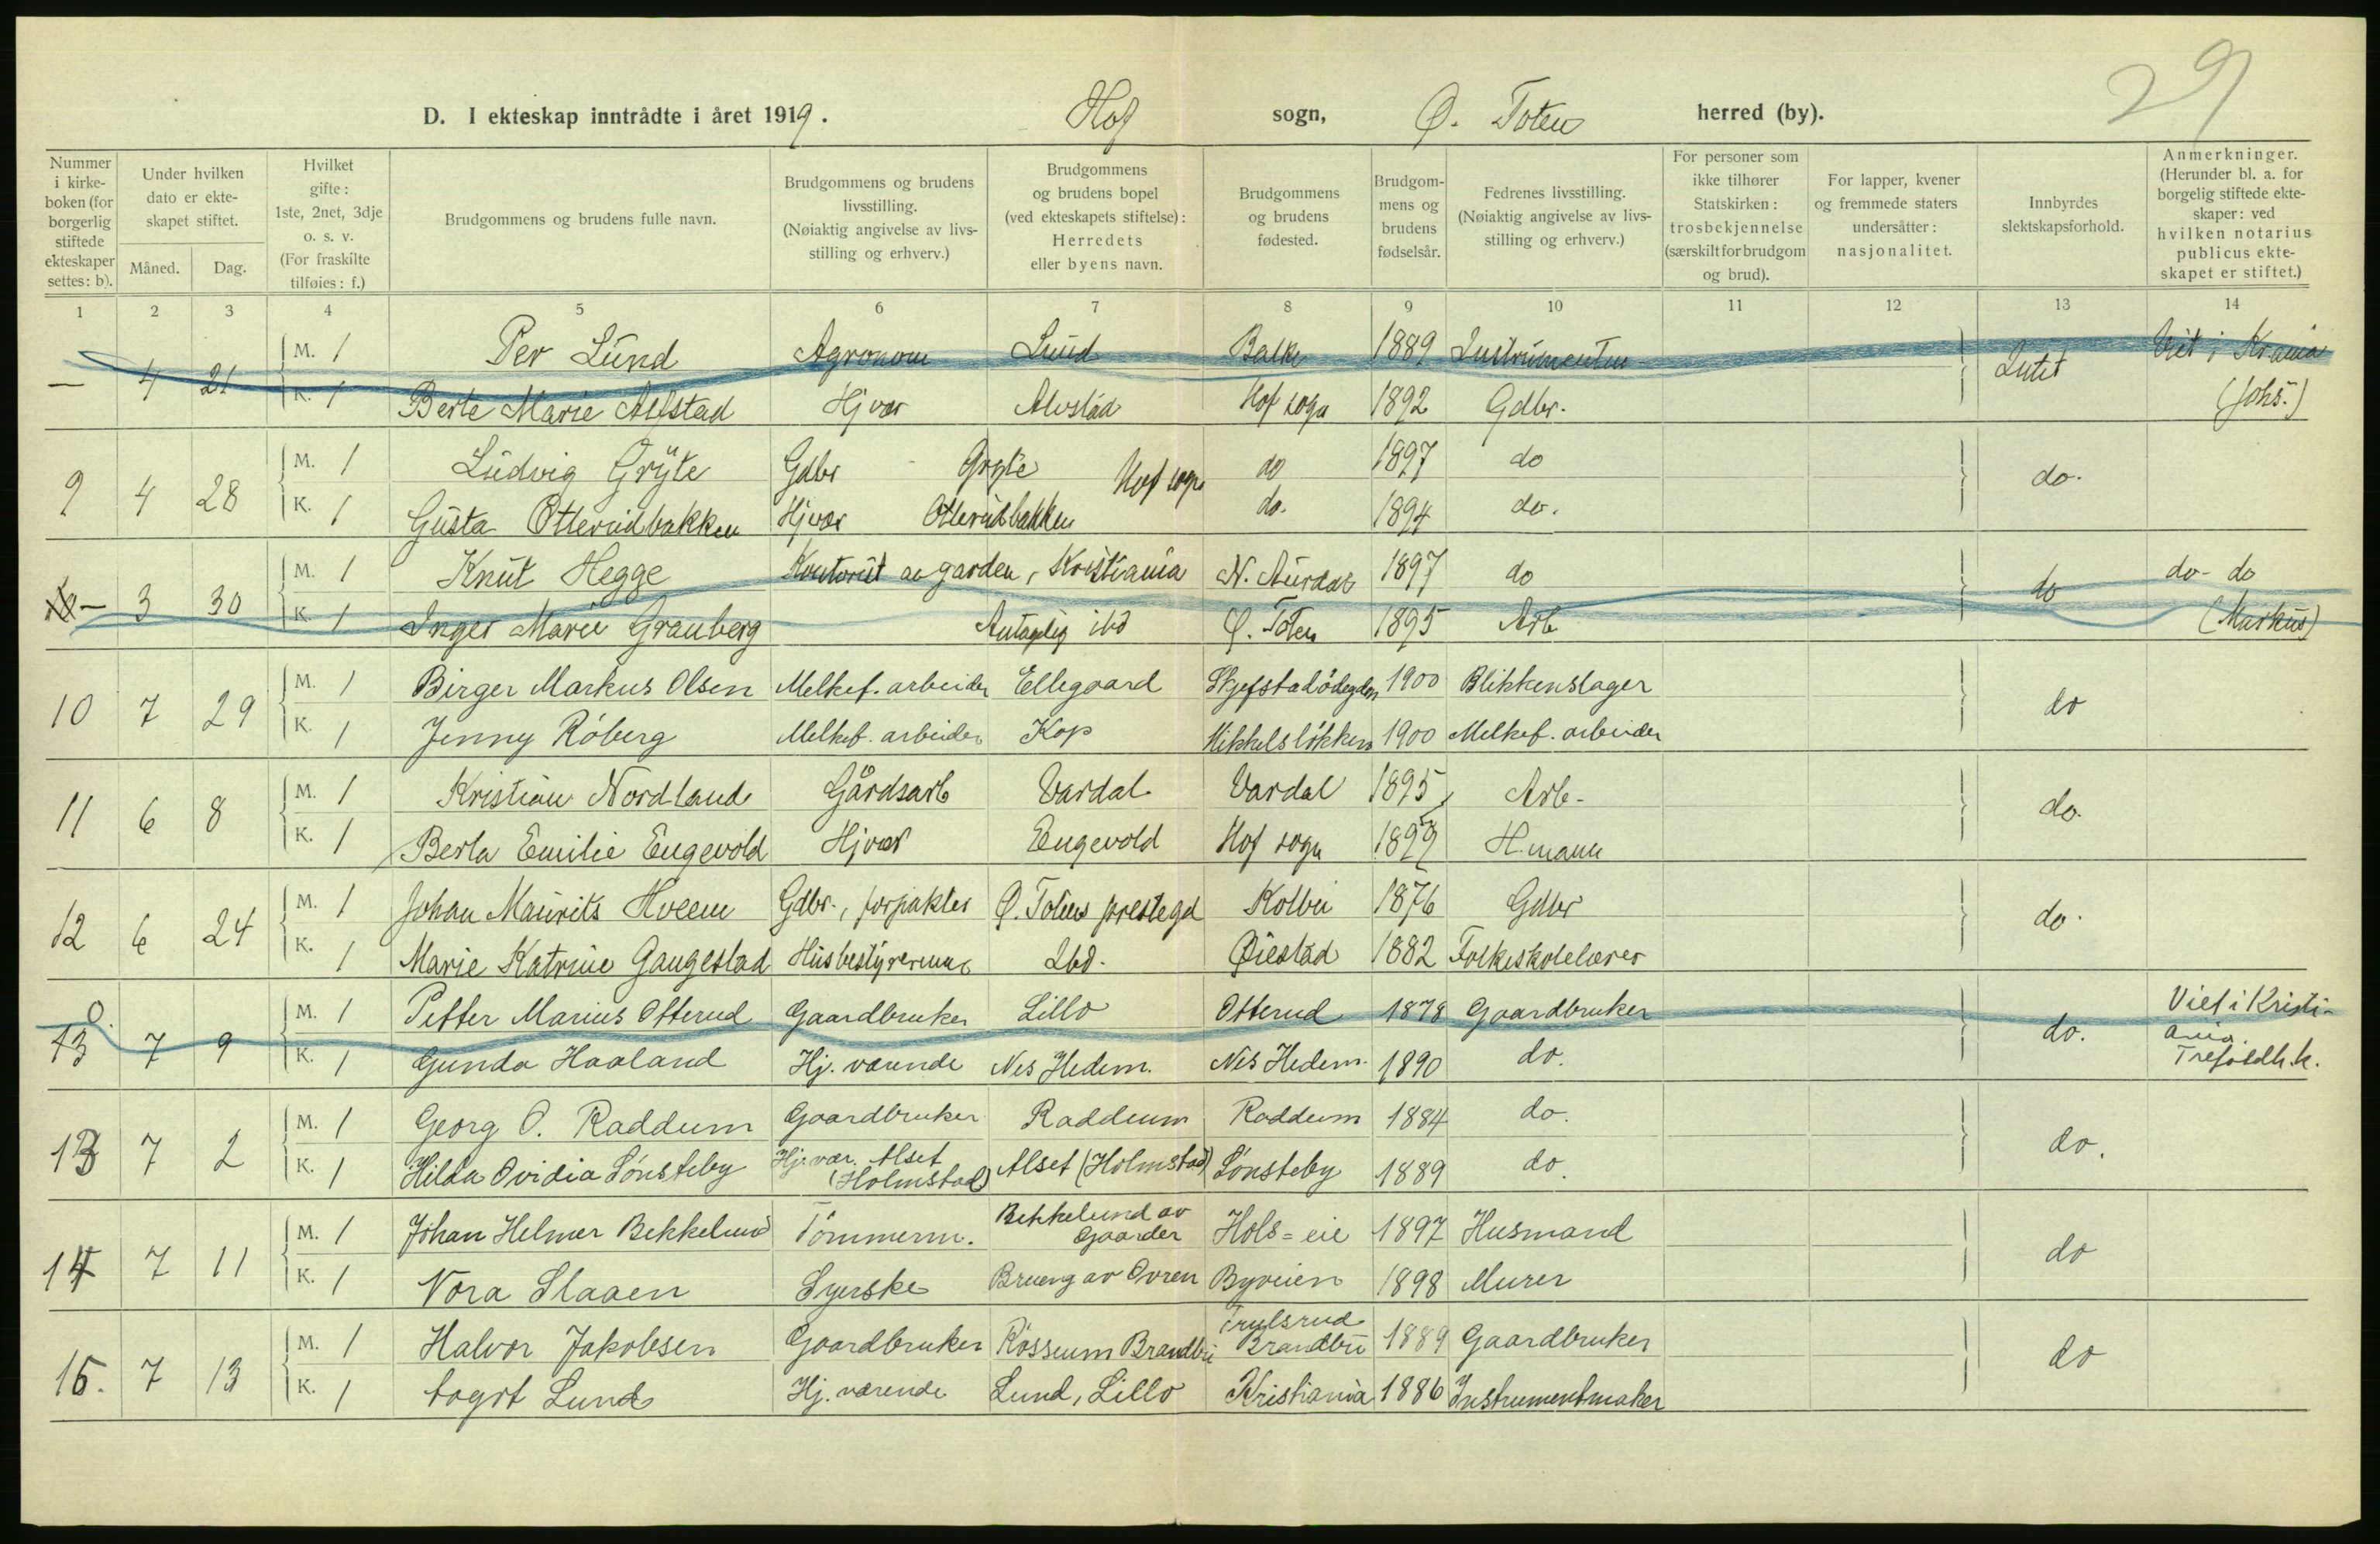 29
D. I ekteskap inntrådte i året 1919. Hof sogn, Ø. Toten herred (by).
Nummer i kirkeboken (for borgerlig stiftede ekteskaper settes: b).
Under hvilken dato er ekteskapet stiftet.
Måned. Dag.
Hvilket gifte: 1ste, 2net, 3dje o. s. v. (For fraskilte tilføies: f.)
Brudgommens og brudens fulle navn.
Brudgommens og brudens livsstilling. (Nøiaktig angivelse av livsstilling og erhverv.)
Brudgommens og brudens bopel (ved ekteskapets stiftelse): Herredets eller byens navn.
Brudgommens og brudens fødested.
Brudgommens og brudens fødselsår.
Fedrenes livsstilling. (Nøiaktig angivelse av livsstilling og erhverv.)
For personer som ikke tilhører Statskirken: trosbekjennelse (særskilt for brudgom og brud).
For lapper, kvener og fremmede staters undersåtter: nasjonalitet.
Innbyrdes slektskapsforhold.
Anmerkninger. (Herunder bl. a. for borgelig stiftede ekteskaper: ved hvilken notarius publicus ekteskapet er stiftet.)
1 2 3 4 5 6 7 8 9 10 11 12 13 14
— 4 21 M. 1 Per Lund Agronom Lund Balke 1889 Instrumentm Intet Viet i Krania
K. 1 Berte Marie Alfstad Hjvær Alvstad Hof sogn 1892 Gdbr. (Johs.)
9 4 28 M. 1 Ludvig Gryte Gdbr Gryte Hof sogn do 1897 do do.
K. 1 Gusta Otterudbakken Hjvær Otterudbakken do. 1894 do.
— 3 30 M. 1 Knut Hegge Kontorist av garden, Kristiania N. Aurdal 1897 do do do - do
K. 1 Inger Marie Granberg Antagelig ibd Ø. Toten 1895 Arb (Markus)
10 7 29 M. 1 Birger Markus Olsen Melkef. arbeider Ellegaard Skjefstadødegden 1900 Blikkenslager do
K. 1 Jenny Röberg Melkef. arbeider Kop Mikkelsløkken 1900 Melkef. arbeider
11 6 8 M. 1 Kristian Nordland Gårdsarb Vardal Vardal 1895 Arb. do.
K. 1 Berta Emilie Engevold Hjvær Engevold Hof sogn 1899 H.mann
12 6 24 M. 1 Johan Maurits Hveem Gdbr., forpakter Ø. Totens prestegd Kolbu 1876 Gdbr do.
K. 1 Marie Katrine Gaugestad Husbestyrerinne Ibd. Øiestad 1882 Folkeskolelærer
13 0. 7 9 M. 1 Petter Marius Otterud Gaardbruker Lillo Otterud 1878 Gaardbruker do. Viet i Kristi-
K. 1 Gunda Haaland Hj. værende Nes Hedem. Nes Hedem. 1890 do. ania. Trefoldh.k.
13 7 2 M. 1 Georg O. Raddum Gaardbruker Raddum Raddum 1884 do. do.
K. 1 Hilda Ovidia Sönsteby Hj. vær. Alset (Holmstad) Alset (Holmstad) Sönsteby 1889 do.
14 7 11 M. 1 Johan Helmer Bekkelund Tömmerm. Bekkelund av Gaarder Hols=eie 1897 Husmand do
K. 1 Nora Slaaen Syerske Brueng av Ovren Byveien 1898 Murer
15. 7 13 M. 1 Halvor Jakobsen Gaardbruker Rössum Brandbu Trulsrud Brandbu 1889 Gaardbruker do
K. 1 Lund Hj. værende Lund, Lillo Kristiania 1886 Instrumentmaker